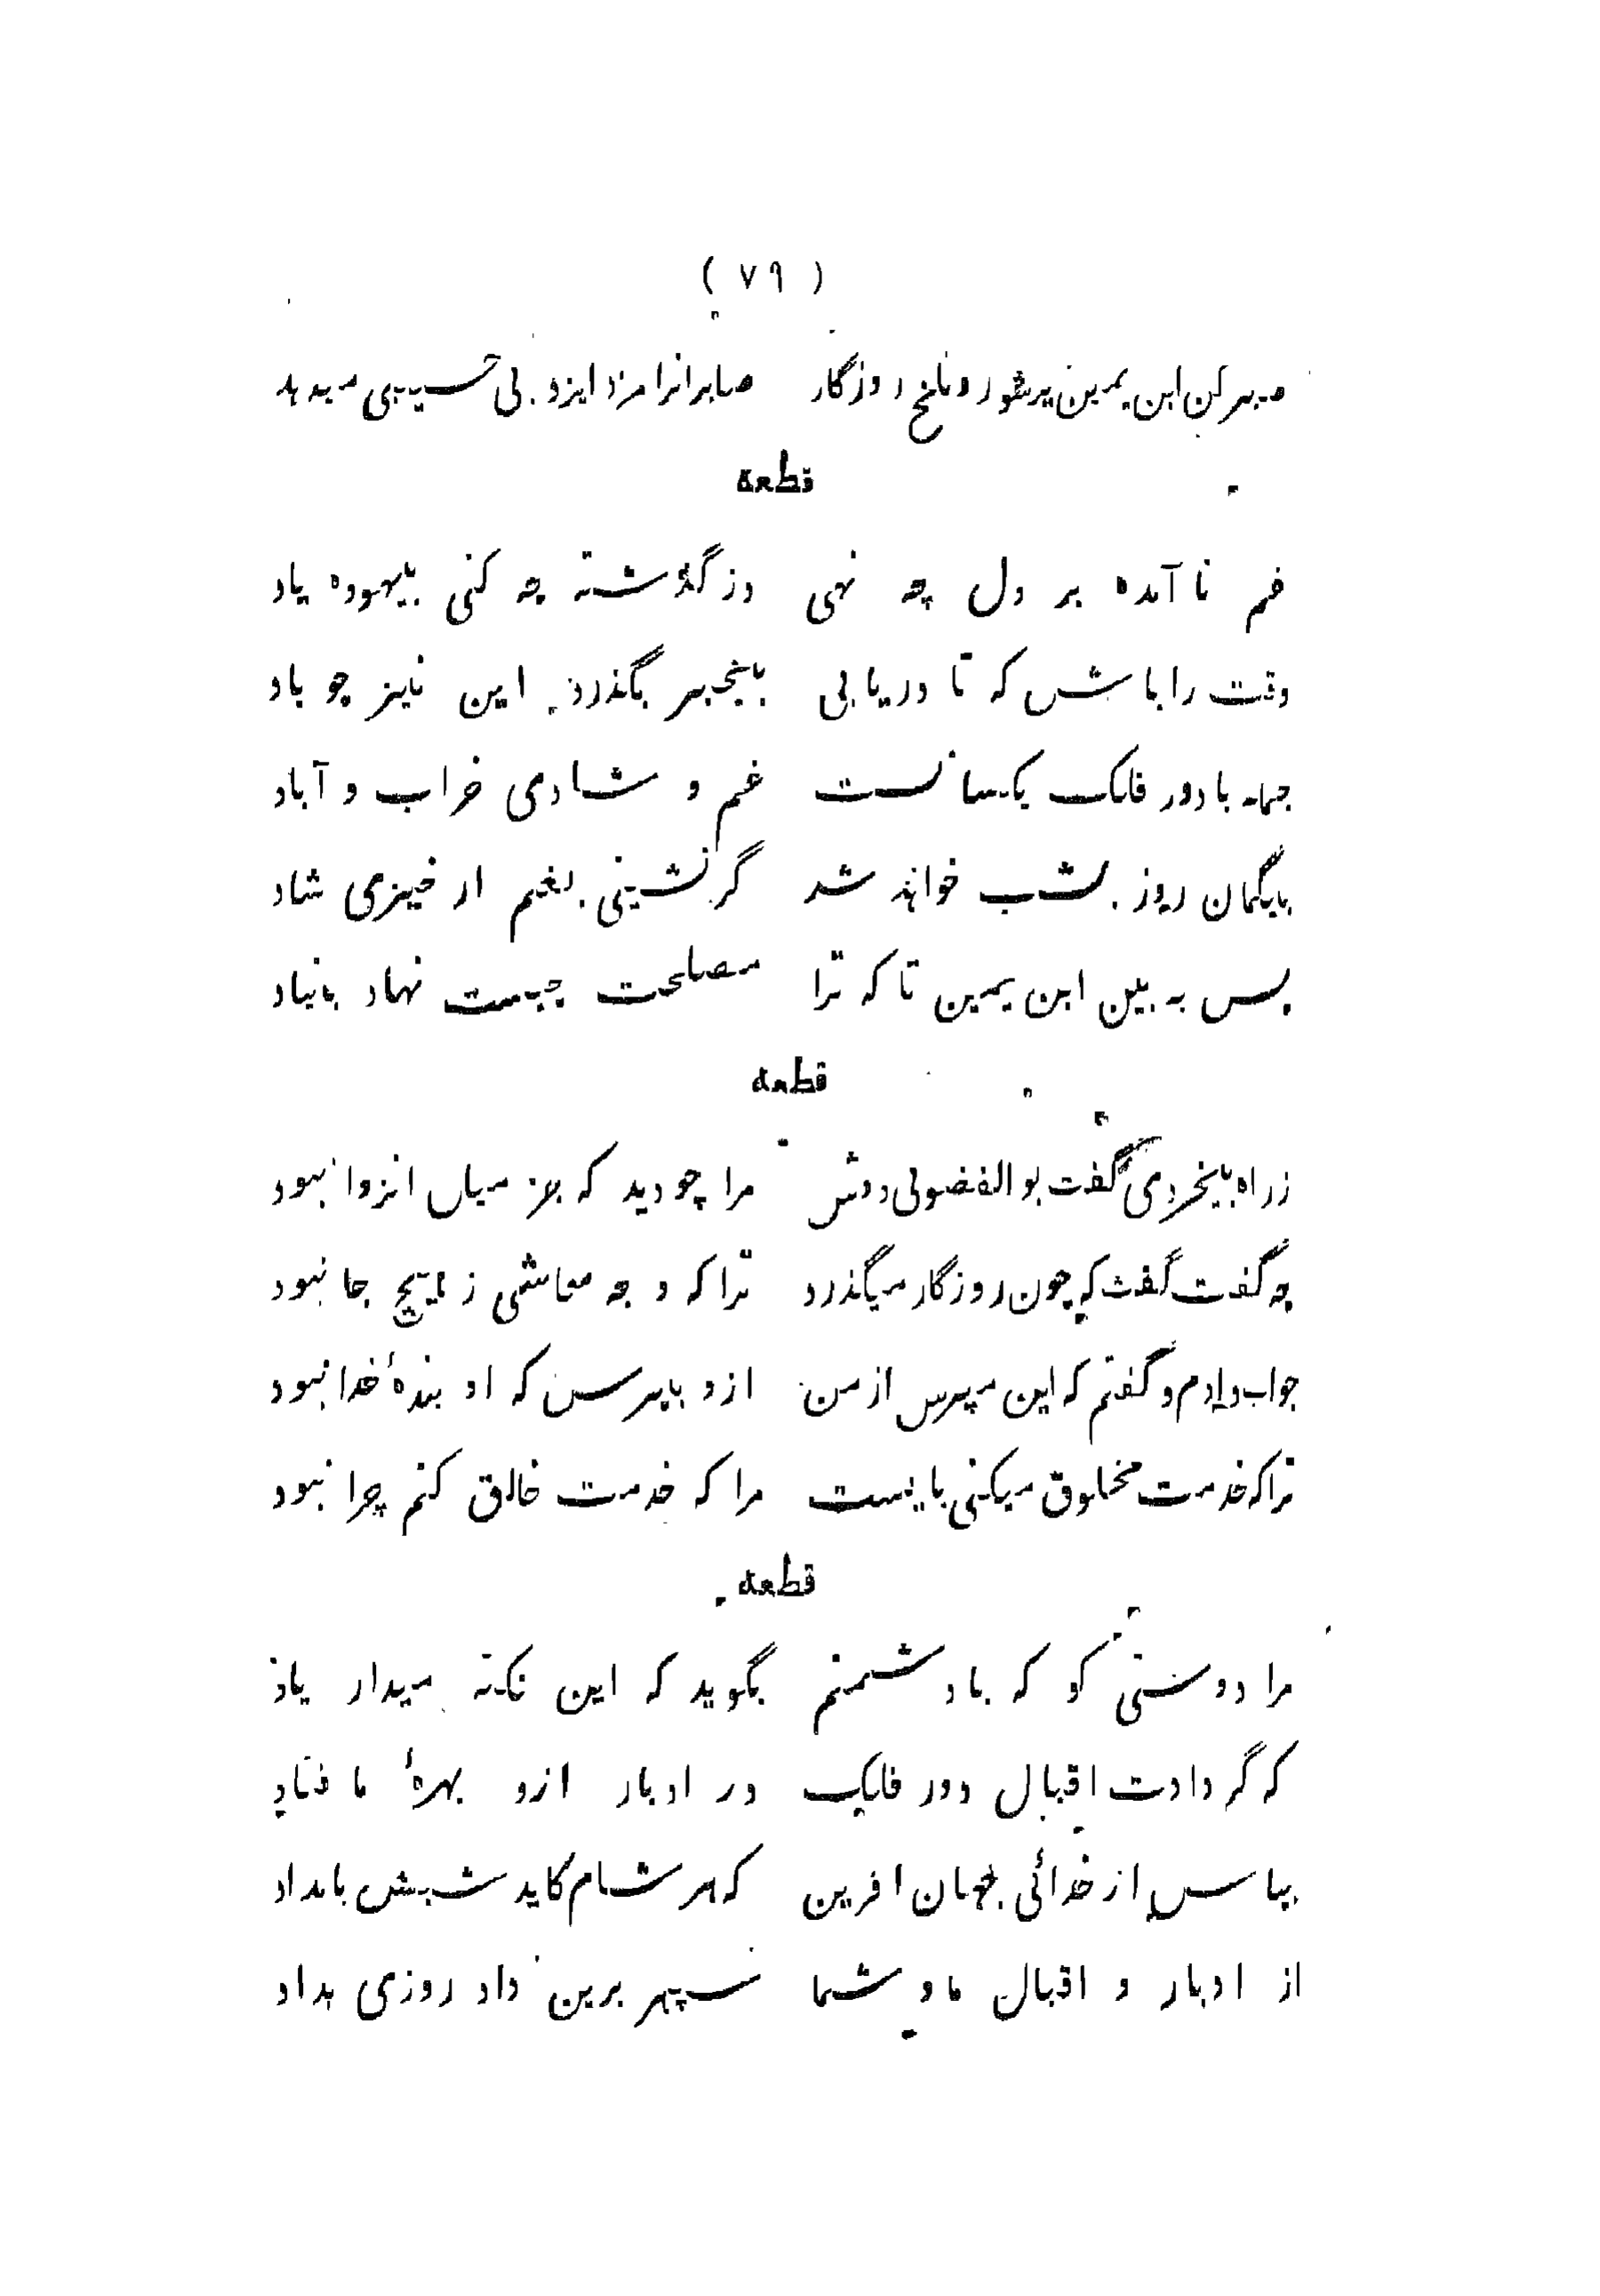 ( ٧٩ )
صبر کن ابن یمین بر شور و تلخ روزگار صابرانرا مزد ایزد بی حسیبی میدهد
قطعه
غم نا آمده بر دل چه نهی وز گذشته چه کنی بیهوده یاد
وقت را باش که تا دریابی بیخبر بگذرد این نیز چو باد
جمله با دور فلک یکسانست غم و شادی خراب و آباد
بیگمان روز بشب خواهد شد گر نشینی بغم ار خیزی شاد
پس به بین ابن یمین تا که ترا مصلحت چیست نهاد بنیاد
قطعه
ز راه بیخردی گفت بو الفضولی دوش مرا چو دید که جز میل انزوا نبود
چه گفت گفت که چون روزگار میگذرد ترا که وجه معاشی ز هیچ جا نبود
جواب دادم و گفتم که این مپرس از من ازو بپرس که او بندهٔ خدا نبود
ترا که خدمت مخلوق میکنی بایست مرا که خدمت خالق کنم چرا نبود
قطعه
مرا دوستی کو که با دشمنم بگوید که این نکته میدار یاد
که گر دادت اقبال دور فلک ور ادبار ازو بهرهٔ ما فتاد
سپاس از خدائی جهان افرین که هر شام کاید شبش بامداد
از ادبار و اقبال ما و شما سپهر برین داد روزی بداد